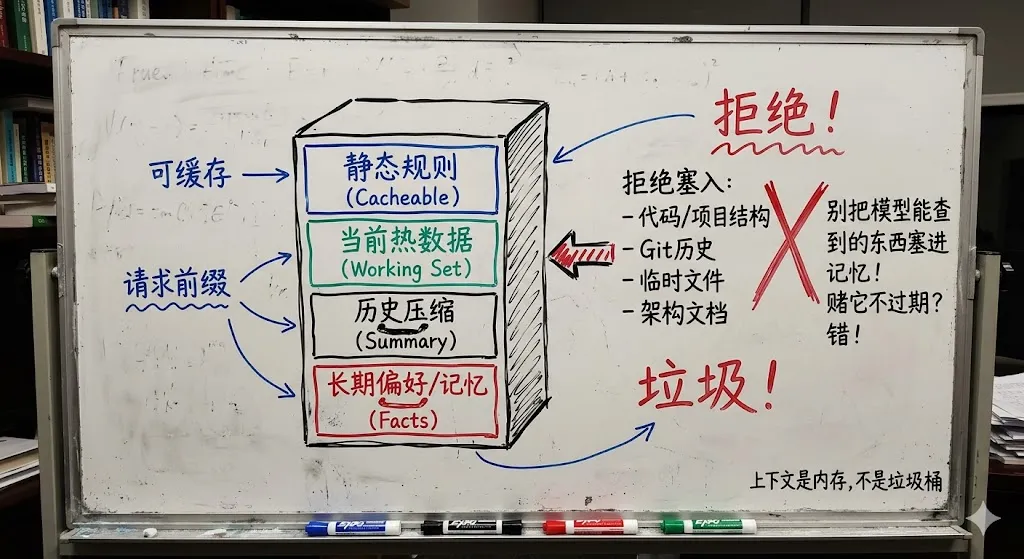 拒绝！
可缓存
静态规则
(Cacheable)
当前热数据
(Working Set)
请求前缀
历史压缩
(Summary)
长期偏好/记忆
(Facts)
拒绝塞入：
-代码/项目结构
-Git历史
-临时文件
-架构文档
别把模型能查
到的东西塞进
记忆！
赌它不过期？
错！
垃圾！
上下文是内存，不是垃圾桶
EXPO
EXPO
EXPO